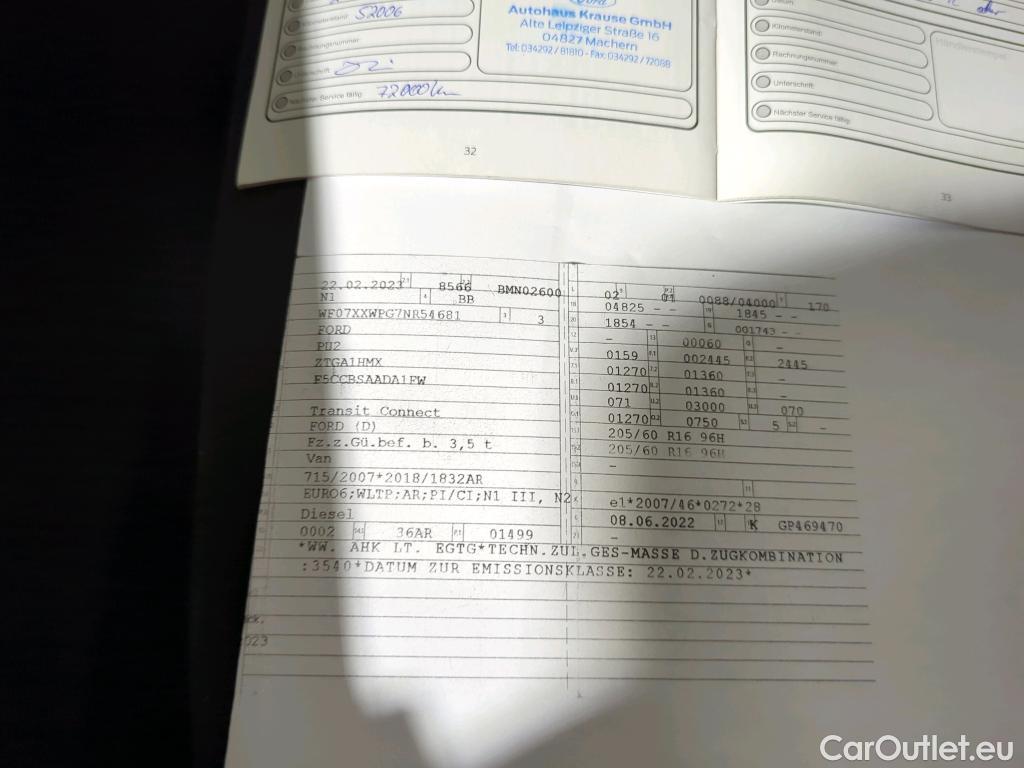 Kilometerstand: 52006
Rechnungsnummer:
Unterschrift:
Nächster Service fällig: 72000 km
32
Ford
Autohaus Krause GmbH
Alte Leipziger Straße 16
04827 Machern
Tel: 034292 / 81810 - Fax: 034292 / 72088
Datum:
Kilometerstand:
Rechnungsnummer:
Unterschrift:
Nächster Service fällig:
Händlerstempel
33
22.02.2023 8566 BMN02600
N1 BB
WF07XXWPG7NR54681 3
FORD
PU2
ZTGA1HMX
F5CCBSAADA1FW
Transit Connect
FORD (D)
Fz.z.Gü.bef. b. 3,5 t
Van
715/2007*2018/1832AR
EURO6;WLTP;AR;PI/CI;N1 III, N2
Diesel
0002 36AR 01499
02 01 0088/04000 170
04825 - - 1845 - -
1854 - - 001743 - -
- 00060 -
0159 002445 2445
01270 01360 -
01270 01360 -
071 03000 070
01270 0750 5 -
205/60 R16 96H
205/60 R16 96H
-
e1*2007/46*0272*28
08.06.2022 K GP469470
-
*WW. AHK LT. EGTG*TECHN.ZUL.GES-MASSE D.ZUGKOMBINATION
:3540*DATUM ZUR EMISSIONSKLASSE: 22.02.2023*
023
CarOutlet.eu